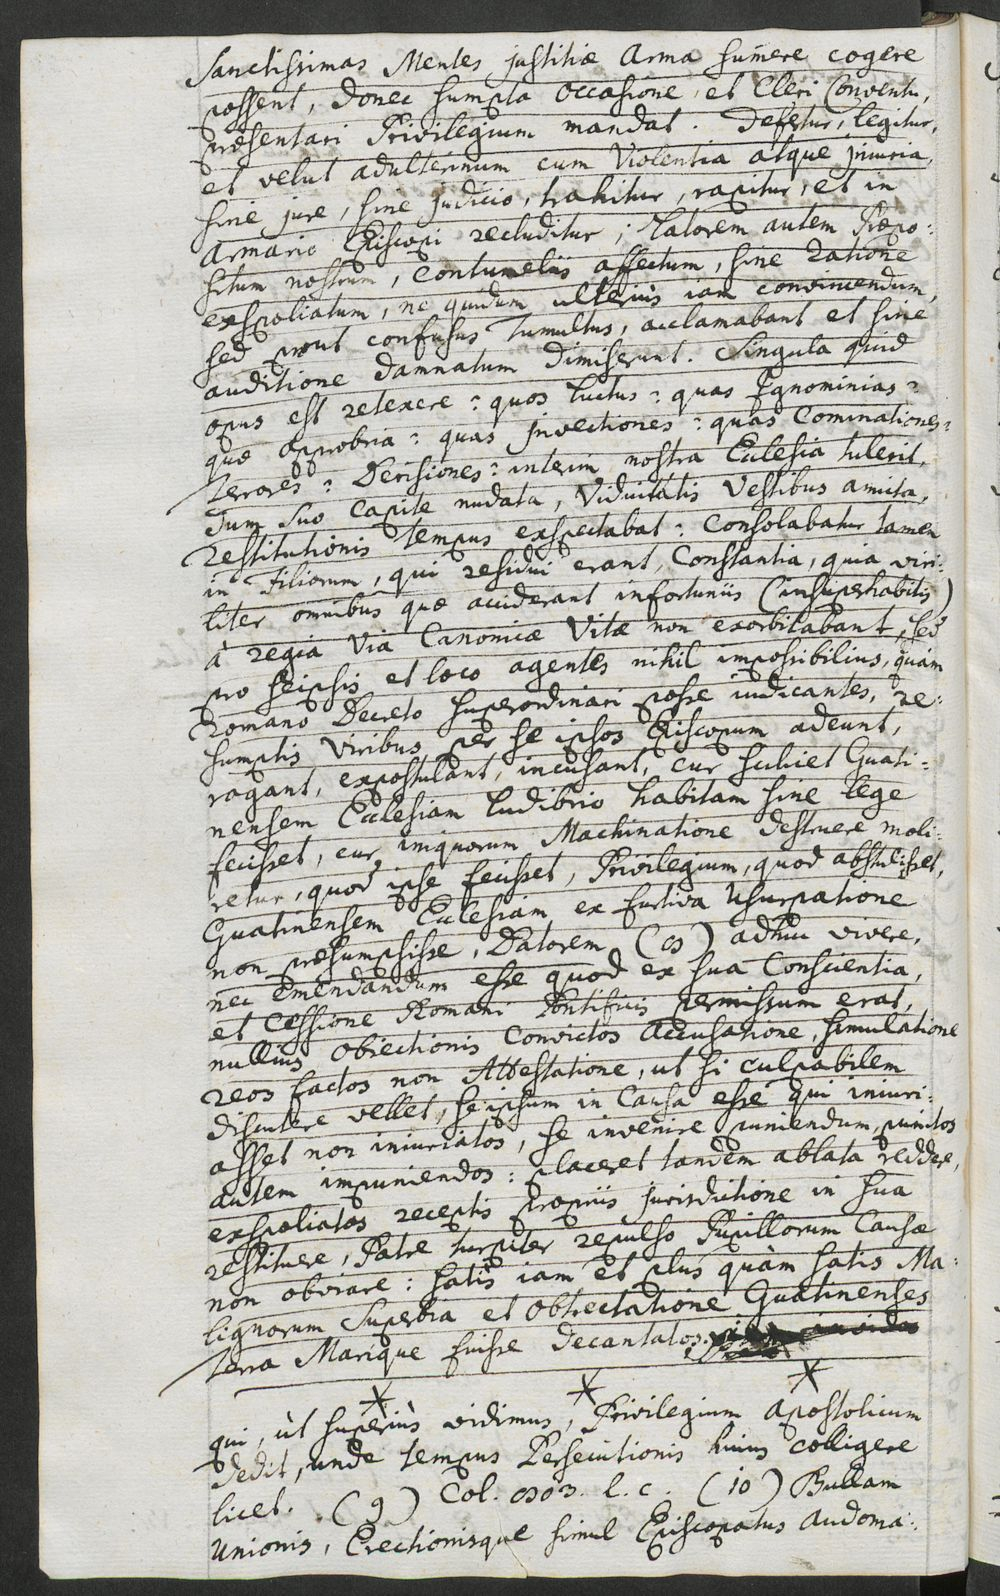 Sanctissimas Mentes justitiæ Arma sumere cogere
possent, donec sumpta Occasione, et Cleri Conventu,
præsentari Privilegium mandat. Defertur, legitur,
et velut adulterinum cum Violentia atque injuria,
sine jure, sine judicio, trahitur, rapitur, et in
Armario Episcopi recluditur; Latorem autem Præpo:
situm nostrum, Contumeliis affectum, sine Ratione
exspoliatum, ne quidum ulterius iam convincendum,
sed prout confusus Tumultus, acclamabant et sine
auditione Damnatum Dimiserunt. Singula quid
opus est retexere? quos luctus? quas Ignominias?
quæ Opprobria? quas Invectiones? quas Cominationes?
Terrores? Derisiones? interim nostra Ecclesia tulerit,
Dum suo Capite nudata, Viduitatis Vestibus amicta,
Restitutionis tempus exspectabat: Consolabatur tamen
in Filiorum, qui residui erant, Constantia, quia viri:
liter omnibus quæ acciderant infortuniis (insuperhabitis)
à regia Via Canonicæ Vitæ non exorbitabant, sed
pro seipsis et loco agentes nihil impossibilius, quàm
Romano Decreto superordinari posse iudicantes, re:
sumptis Viribus per se ipsos Episcopum adeunt,
ragant, expostulant, incusant, cur scilicet Guati:
nensem Ecclesiam Ludibrio habitam sine lege
fecisset, cur iniquorum Machinatione destruere moli:
retur, quod ipse fecisset, Privilegium, quod abstulisset,
Guatinensem Ecclesiam ex furtiva Usurpatione
non præsumpsisse, Datorem (03) adhuc vivere,
nec emendandum esse quod ex sua Conscientia,
et Cessione Romani Pontificis permissum erat,
nullius Obiectionis Convictos Accusatione, simulatione
reos factos non Attestatione, ut si culpabilem
discutere vellet, se ipsum in Causa esse qui iniuri:
asset non iniuriatos, se invenire puniendum, punitos
autem impuniendos: placeret tandem ablata reddere,
exspoliatos receptis propriis jurisdictione in sua
restituere, Patre turpiter repulso Pupillorum Causæ
non obviare: satis iam et plus quàm satis Ma:
lignorum Superbia et Obtrectatione Guatinenses
Terra Marique fuisse decantatos.
* * *
qui, ùt superiùs vidimus, Privilegium Apostolicum
dedit, unde tempus Persecutionis huius colligere
licet. (9) Col. 0303. l. c. (10) Bullam
Unionis, Erectionisque simul Episcopatus Audoma: